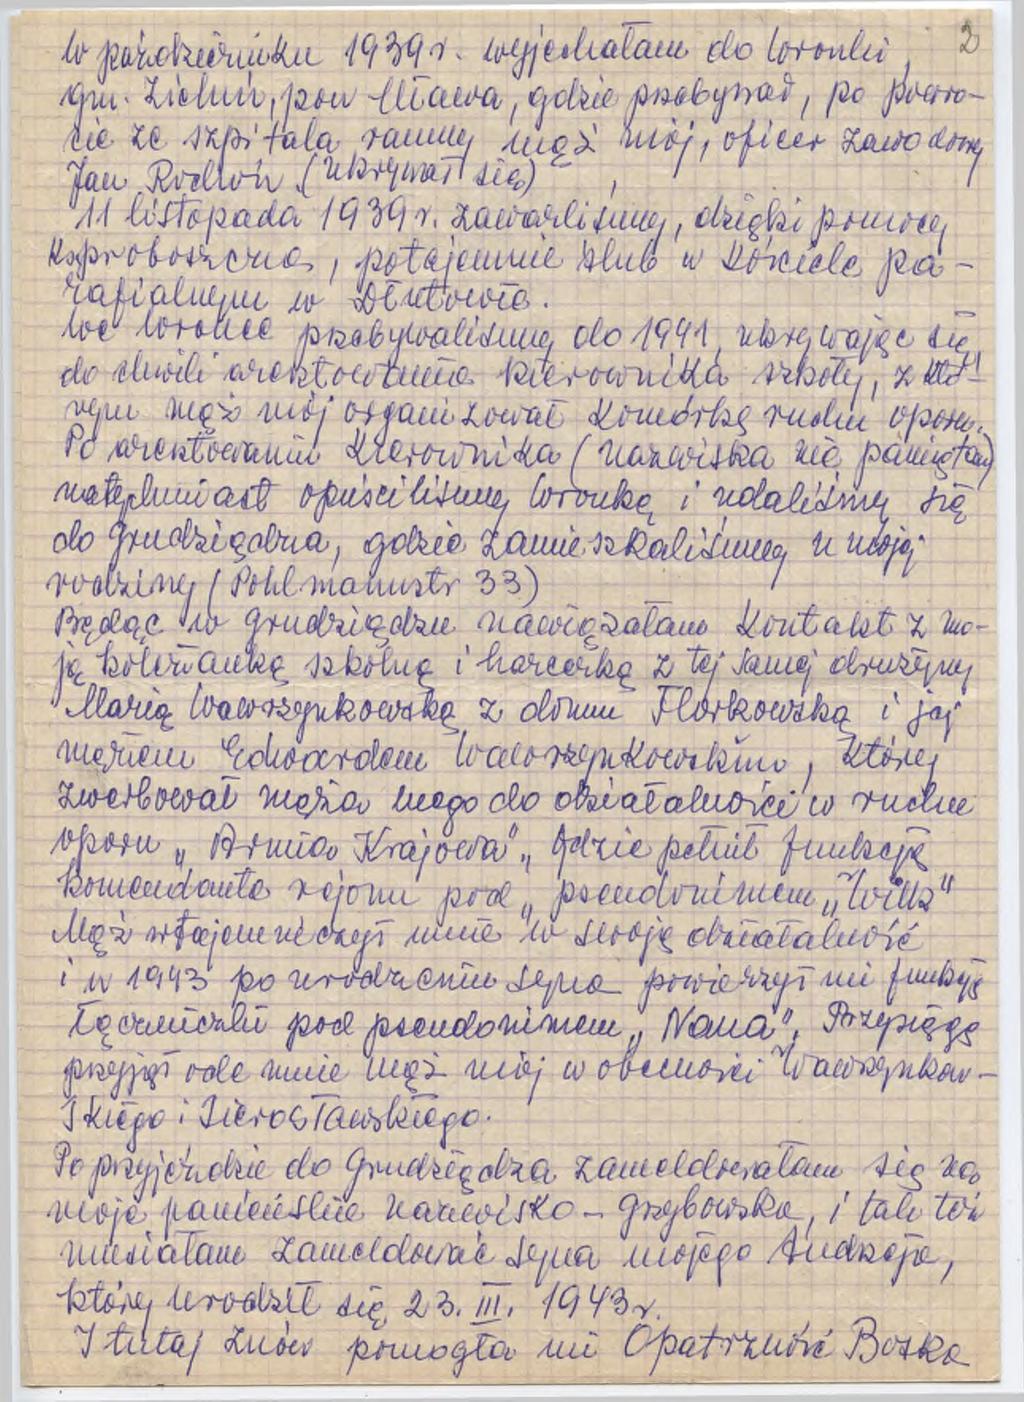 2
W październiku 1939 r. wyjechałam do Wronki,
gm. Zieluń, pow Mława, gdzie przebywał, po powro-
cie ze szpitala ranny mąż mój, oficer zawodowy
Jan Rochoń (ukrywał się)
11 listopada 1939 r. zawarliśmy, dzięki pomocy
Ks proboszcza, potajemnie ślub w Kościele pa-
rafialnym w Dłutowie.
We Wronce przebywaliśmy do 1941, ukrywając się
do chwili aresztowania kierownika szkoły, z któ-
rym mąż mój organizował Komórkę ruchu oporu.
Po aresztowaniu Kierownika (nazwiska nie pamiętam)
natychmiast opuściliśmy Wronkę i udaliśmy się
do Grudziądza, gdzie zamieszkaliśmy u mojej
rodziny (Pohlmannstr 33)
Będąc w Grudziądzu nawiązałam Kontakt z mo-
ją koleżanką szkolną i harcerką z tej samej drużyny
Marią Wawrzynkowską z domu Florkowską i jej
mężem Edwardem Wawrzynkowskim, który
zwerbował męża mego do działalności w ruchu
oporu „Armia Krajowa", gdzie pełnił funkcję
komendanta rejonu pod „pseudonimem „Wilk"
Mąż wtajemniczył mnie w swoją działalność
i w 1943 po urodzeniu syna powierzył mi funkcję
łączniczki pod pseudonimem „Nana". Przysięgę
przyjął ode mnie mąż mój w obecności Wawrzynkow-
skiego i Sierosławskiego.
Po przyjeździe do Grudziądza zameldowałam się na
moje panieńskie nazwisko - Grzybowska, i tak też
musiałam zameldować syna mojego Andrzeja,
który urodził się 23. III. 1943 r.
I tutaj znów pomogła mi Opatrzność Boska